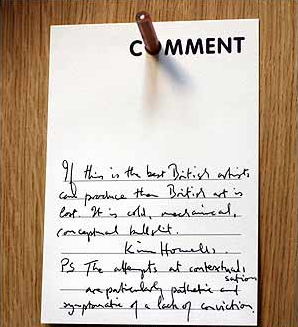 COMMENT
If this is the best British artists
can produce then British art is
lost. It is cold, mechanical,
conceptual bullshit.
Kim Howells.
PS The attempts at contextuali
sation
are particularly pathetic and
symptomatic of a lack of conviction.